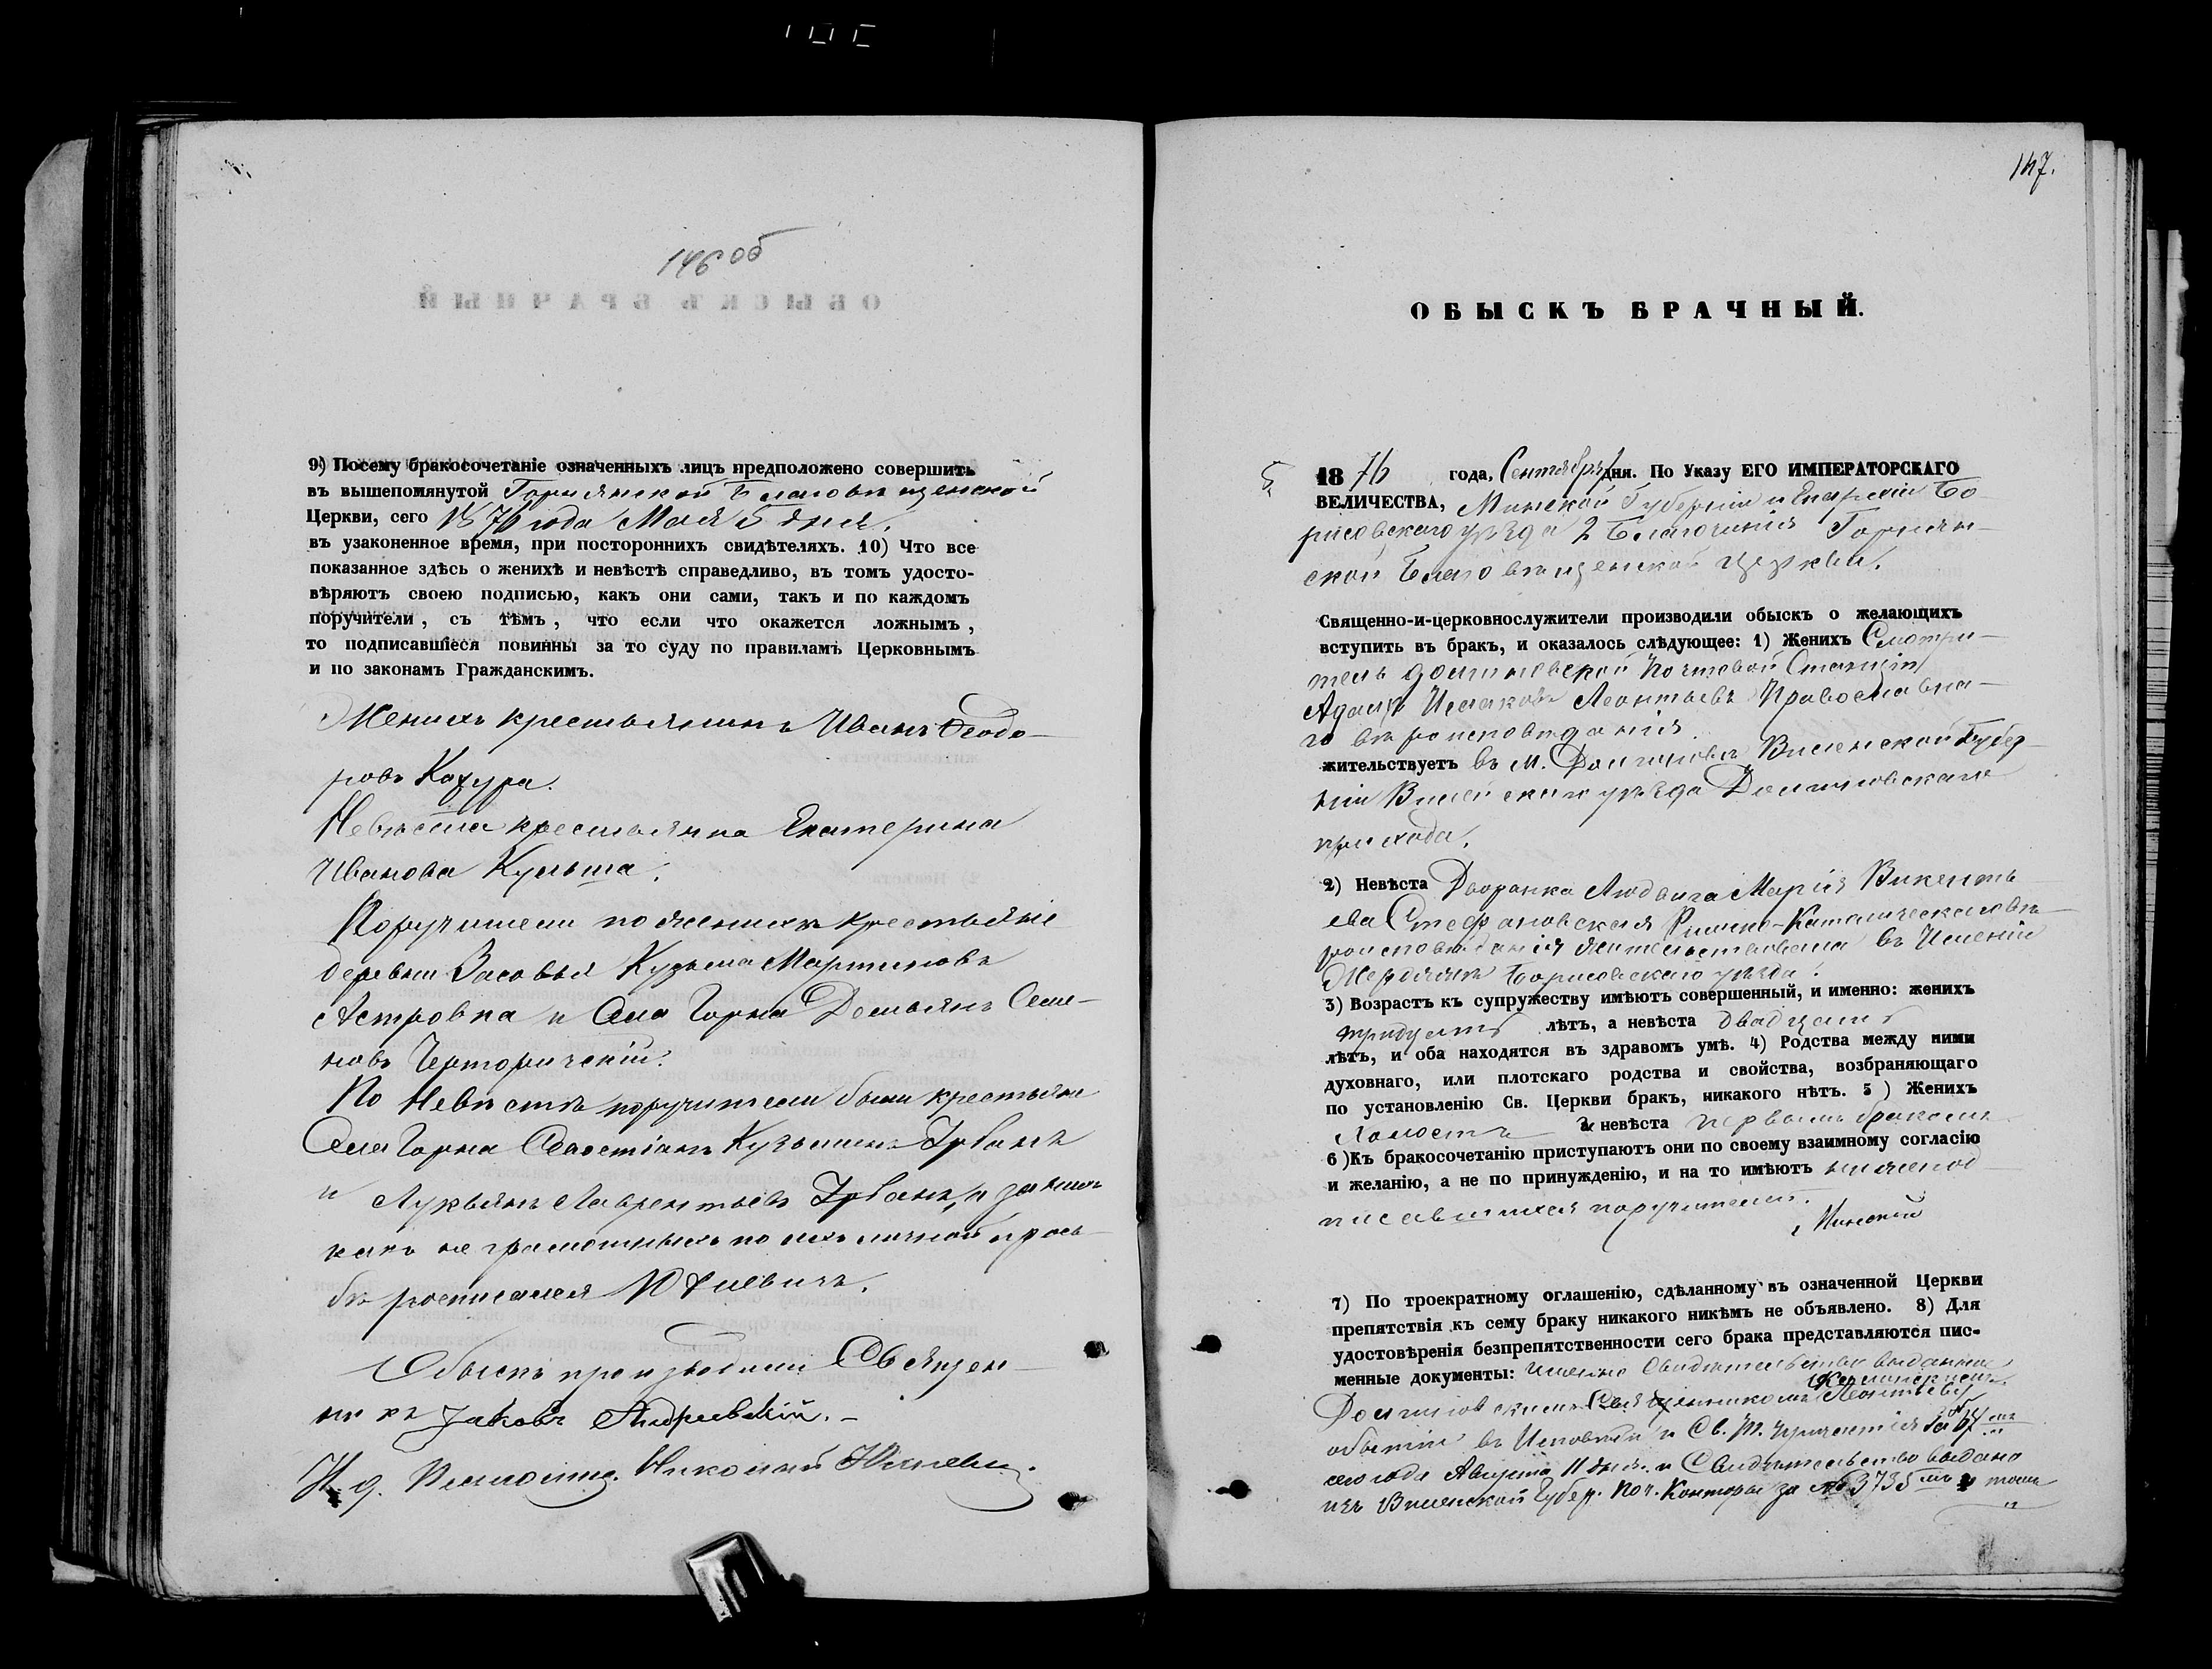 146 об
9) Посему бракосочетаніе означенныхъ лицъ предположено совершить
въ вышепомянутой Горнянской Благовѣщенской
Церкви, сего 1876 года Мая 5 дня.
въ узаконенное время, при постороннихъ свидѣтеляхъ. 10) Что все
показанное здѣсь о женихѣ и невѣстѣ справедливо, въ томъ удосто-
вѣряютъ своею подписью, какъ они сами, такъ и по каждомъ
поручители, съ тѣмъ, что если что окажется ложнымъ,
то подписавшіеся повинны за то суду по правиламъ Церковнымъ
и по законамъ Гражданскимъ.
Женихъ крестьянинъ Иванъ Ѳеодо-
ровъ
Невѣста крестьянка Екатерина
Иванова Кульша.
Поручители по женихѣ крестьяне
деревни Засовья Кузьма Мартиновъ
Астровка и Села Горна Демьянъ Семе-
новъ
По Невѣстѣ поручители были крестьяне
Села Горна Севостіанъ Кузьминъ Урбанъ
и Лукьянъ Лаврентьевъ Урбанъ, а за нихъ
какъ не грамотныхъ по ихъ личной прось-
бѣ росписался
Обыскъ производили Священ-
никъ Іаковъ Андріевскій.
И. д. Псаломщ. Николай
147.
ОБЫСКЪ БРАЧНЫЙ.
5.
1876 года, Сентября дня. По Указу ЕГО ИМПЕРАТОРСКАГО
ВЕЛИЧЕСТВА, Минской Губерніи и Епархіи Бо
рисовскаго уѣзда 2 Благочинія Горнян-
ской Благовѣщенской церкви.
Священно-и-церковнослужители производили обыскъ о желающихъ
вступить въ бракъ, и оказалось слѣдующее: 1) Женихъ Смотри-
тель Долгиновской Почтовой Станціи
Адамъ Исаковъ Леонтьевъ Православна-
го вѣроисповѣданія.
жительствуетъ въ М. Долгиновѣ Виленской Губер-
ніи Виленскаго уѣзда Долгиновскаго
прихода.
2) Невѣста Дворянка Людвига Марія Викенть
ева Стефановская Римско-Католическаго вѣ-
роисповѣданія жительствовала въ Имѣніи
Борисовскаго уѣзда.
3) Возрастъ къ супружеству имѣютъ совершенный, и именно: женихъ
тридцать лѣтъ, а невѣста двадцать
лѣтъ, и оба находятся въ здравомъ умѣ. 4) Родства между ними
духовнаго, или плотскаго родства и свойства, возбраняющаго
по установленію Св. Церкви бракъ, никакого нѣтъ. 5) Женихъ
Холостъ а невѣста первымъ бракомъ
6) Къ бракосочетанію приступаютъ они по своему взаимному согласію
и желанію, а не по принужденію, и на то имѣютъ нижепод-
писавшихся поручителей.
Минскій
7) По троекратному оглашенію, сдѣланному въ означенной Церкви
препятствія къ сему браку никакого никѣмъ не объявлено. 8) Для
удостовѣренія безпрепятственности сего брака представляются пис-
менные документы: именно Свидѣтельство выданное
Долгиновскимъ Священникомъ Леонтьеву
о бытіи въ Исповѣди и Св. Т. причастія за № 64
сего года Августа 11 дня. и Свидѣтельство выдано
изъ Виленской Губер. Поч. Конторы за № 3735